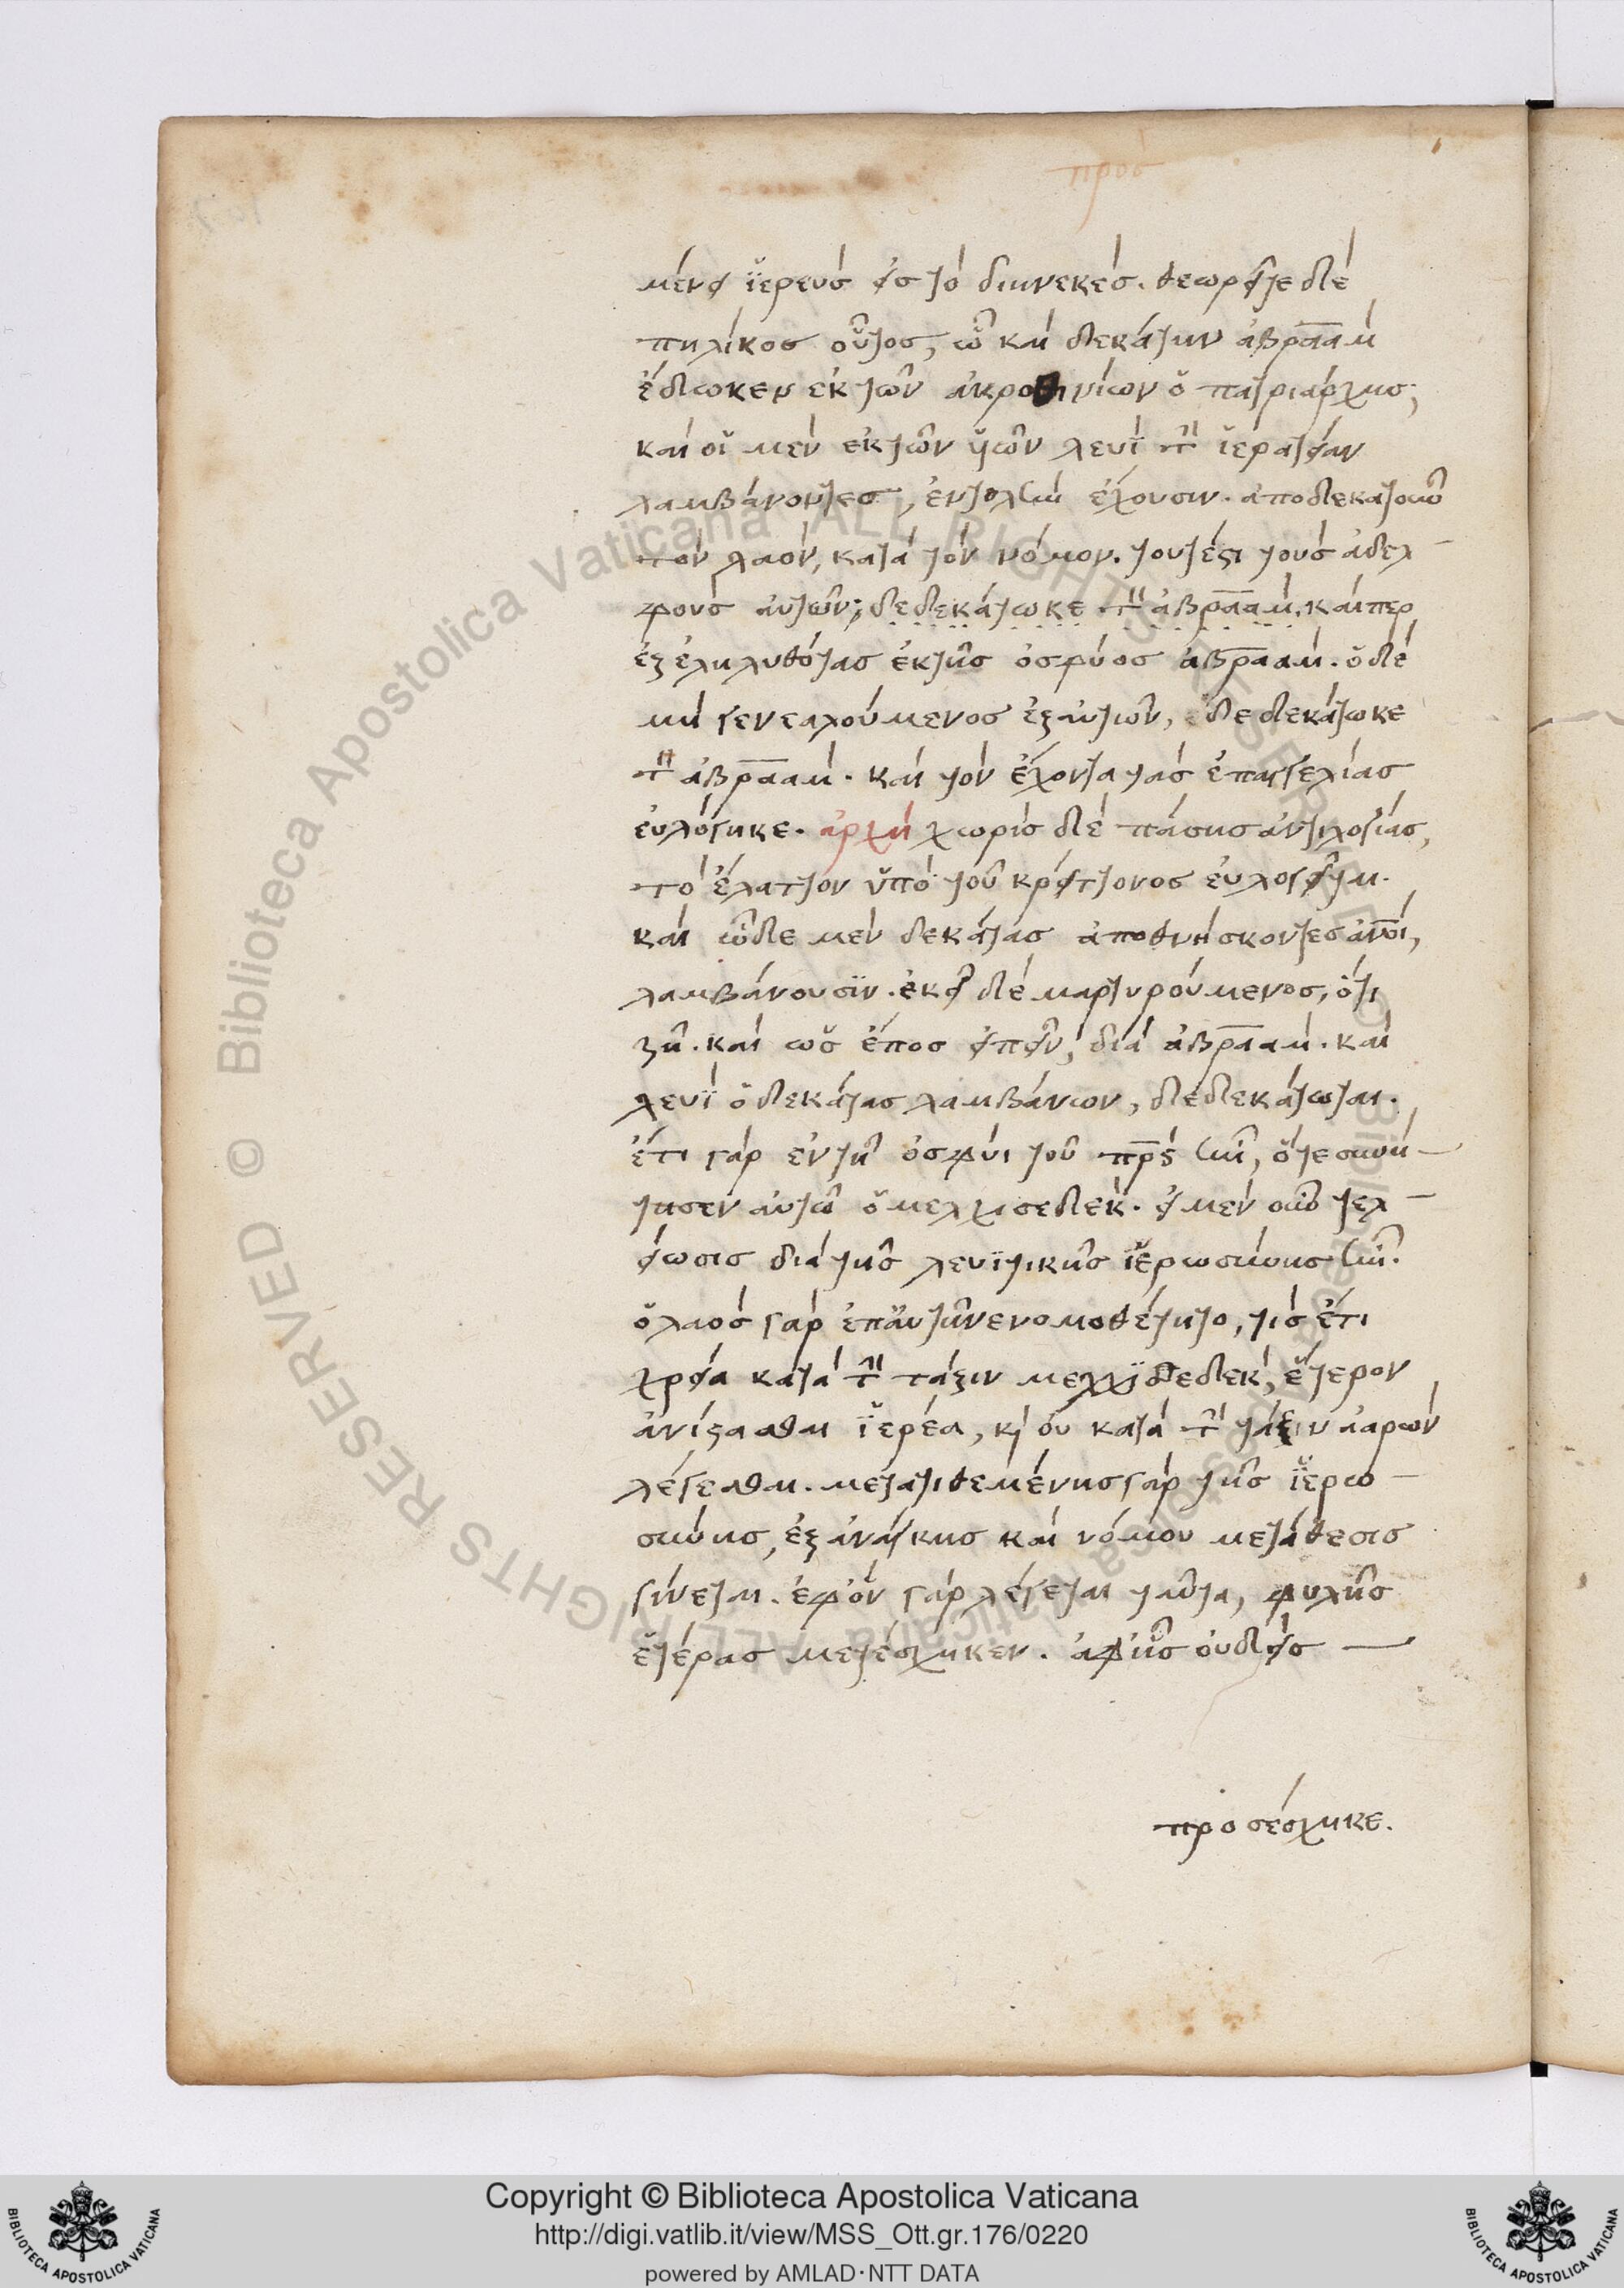 προσ
μένει ἱερεὺς εἰς τὸ διηνεκές. θεωρεῖτε δὲ
πηλίκος οὗτος, ᾧ καὶ δεκάτην ἀβρααμ
ἔδωκεν ἐκ τῶν ἀκροθηνίων ὁ πατριάρχης;
καὶ οἱ μὲν ἐκ τῶν ὑιῶν λευῒ τ̂ ἱερατείαν
λαμβάνοντες, ἐντολὴν ἔχουσιν. ἀποδεκατοῦν
τὸν λαὸν, κατὰ τὸν νόμον. τουτέστι τοὺς ἀδελ
φοὺς αὐτῶν; δεδεκάτωκε τ̂ ἀβρααμ. καίπερ
ἐξεληλυθότας ἐκ τῆς ὀσφύος ἀβρααμ. ὁ δὲ
μὴ γενεαλούμενος ἐξ αὐτῶν, δεδεκάτωκε
τ̂ ἀβρααμ. καὶ τὸν ἔχοντα τὰς ἐπαγγελίας
εὐλόγηκε. ἀρχὴ χωρὶς δὲ πάσης ἀντιλογίας,
τὸ ἔλαττον ὑπὸ τοῦ κρείττονος εὐλογεῖται.
καὶ ὧδε μὲν δεκάτας ἀποθνήσκοντες ἀνοι,
λαμβάνουσϊν. ἐκεῖ δὲ μαρτυρούμενος, ὅτι
ζῆ. καὶ ὡς ἔπος εἰπεῖν, διὰ ἀβρααμ. καὶ
λευῒ ὁ δεκάτας λαμβάνων, δεδεκάτωται.
ἔτι γὰρ ἐν τῆ ὀσφύϊ τοῦ πρς ἦν, ὅτε συνή
τησεν αὐτῶ ὁ μελχισεδέκ. εἰ μὲν οὖν τελ
είωσις διὰ τῆς λευϊτικῆς ἱερωσύνης ἦν.
ὁ λαὸς γὰρ ἐπ' αὐτῆ νενομοθέτητο, τίς ἔτι
χρεία κατὰ τ̂ τάξιν μελχϊσεδὲκ, ἕτερον
ἀνίστασθαι ἱερέα, κ̀ οὐ κατὰ τ̂ τάξιν ἀαρὼν
λέγεσθαι. μετατιθεμένης γὰρ τῆς ἱερω
σύνης, ἐξ ἀνάγκης καὶ νόμου μετάθεσις
γίνεται. ἐφ' ὃν γὰρ λέγεται ταῦτα, φυλῆς
ἑτέρας μετέσχηκεν. ἀφ' ἧς οὐδεὶς
προσέσχηκε.
Copyright © Biblioteca Apostolica Vaticana
http://digi.vatlib.it/view/MSS_Ott.gr.176/0220
powered by AMLAD·NTT DATA